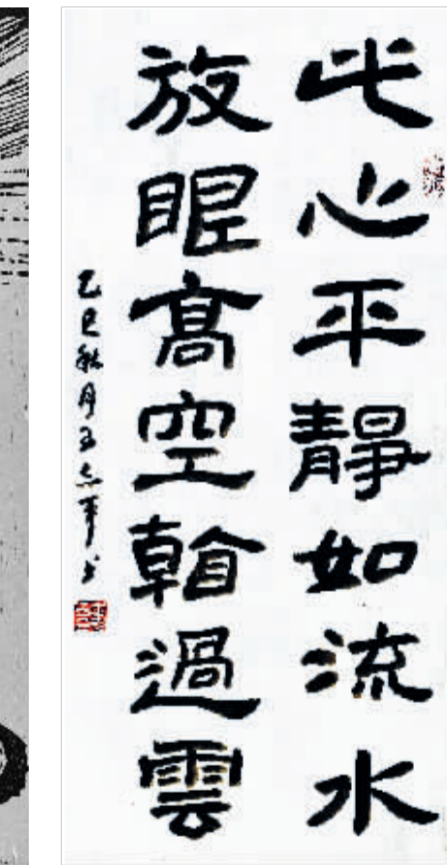 此心平靜如流水
放眼髙空看過雲
乙巳秋月